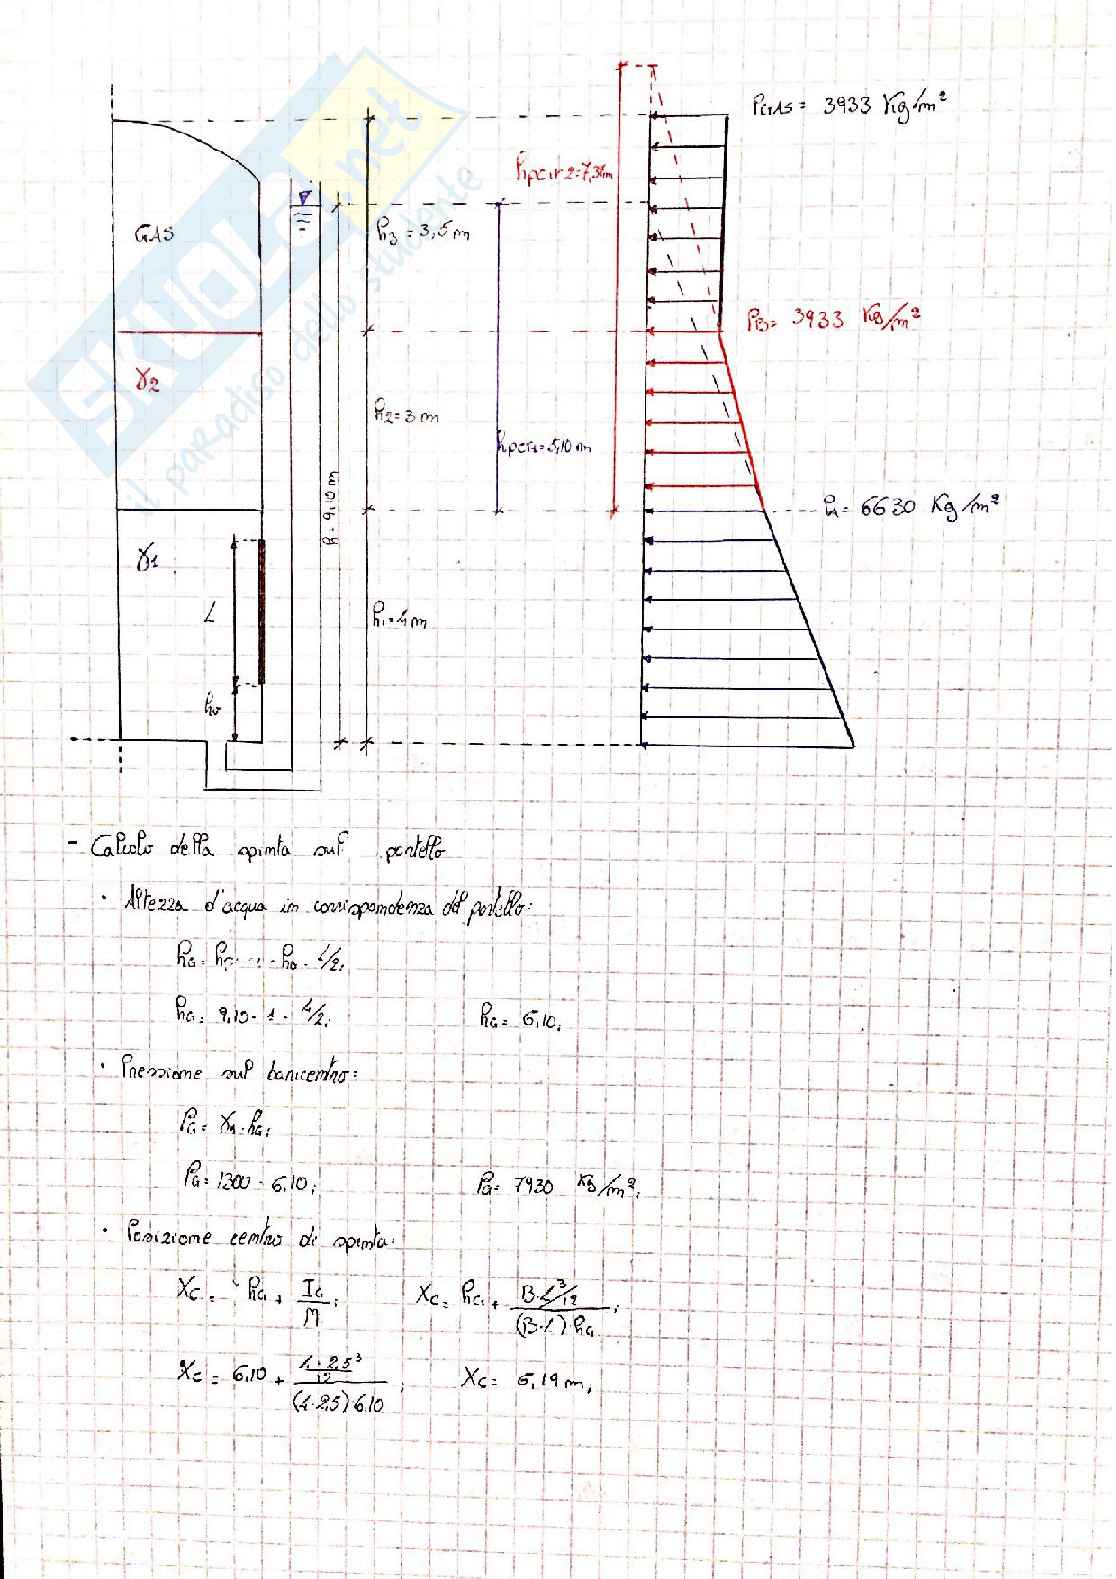 SKUOLA.net
il paradiso dello studente
PGAS = 3933 Kg/m²
hpcir2=7,37m
GAS
h3 = 3,5 m
PB= 3933 Kg/m²
γ2
h2=3m
hpcr1=5,10 m
h= 9,10 m
PA= 6630 Kg/m²
γ1
L
h1=4m
h0
- Calcolo della spinta sul portello
· Altezza d'acqua in corrispondenza del portello:
hG= - h0 - L/2;
hG= 9,10 - 1 - L/2; hG= 6,10;
· Pressione sul baricentro:
PG= γ1·hG;
PG= 1300 · 6,10; PG= 7930 Kg/m²;
· Posizione centro di spinta:
XC= hG + IG/M; XC= hG + (B·L³/12)/((B·L) hG;
XC= 6,10 + (1·2,5³/12)/((1·2,5)·6,10; XC= 6,19 m;